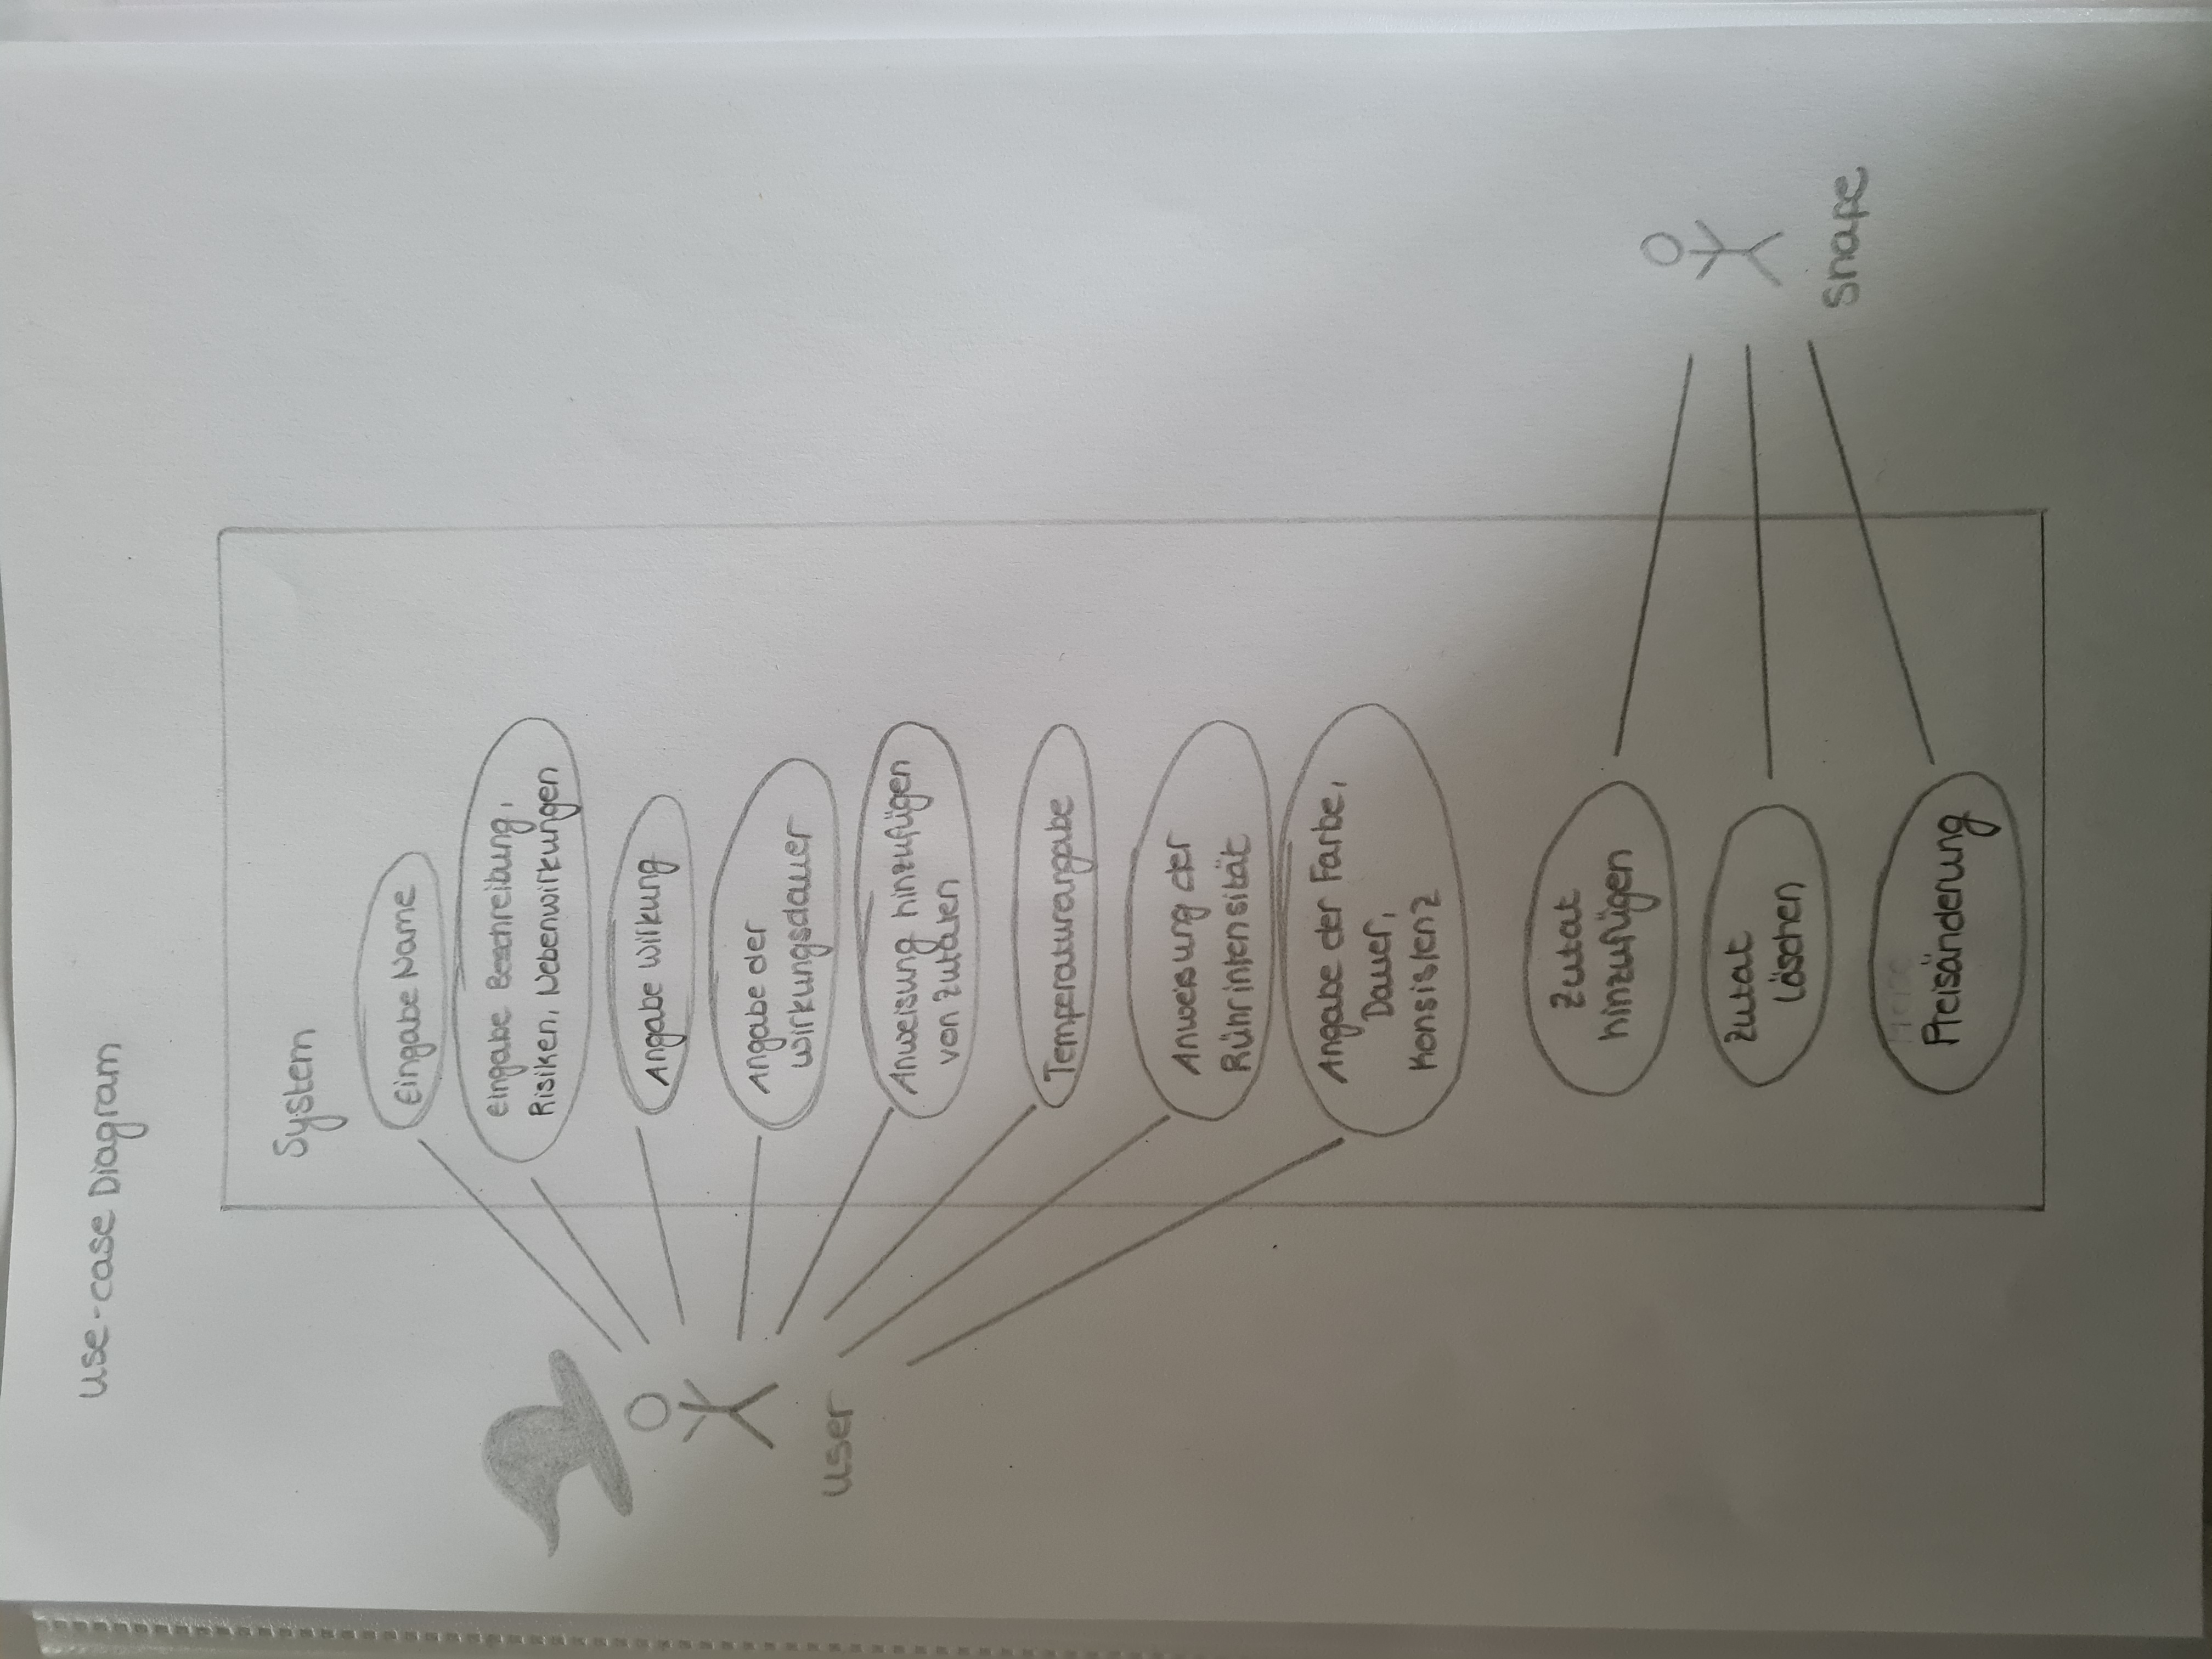 use-case Diagram
System
Eingabe Name
Eingabe Beschreibung,
Risiken, Nebenwirkungen
Angabe Wirkung
Angabe der
Wirkungsdauer
user
Anweisung hinzufügen
von Zutaten
Temperaturangabe
Anweisung der
Rührintensität
Angabe der Farbe,
Dauer,
Konsistenz
Zutat
hinzufügen
Zutat
löschen
Snape
Preisänderung